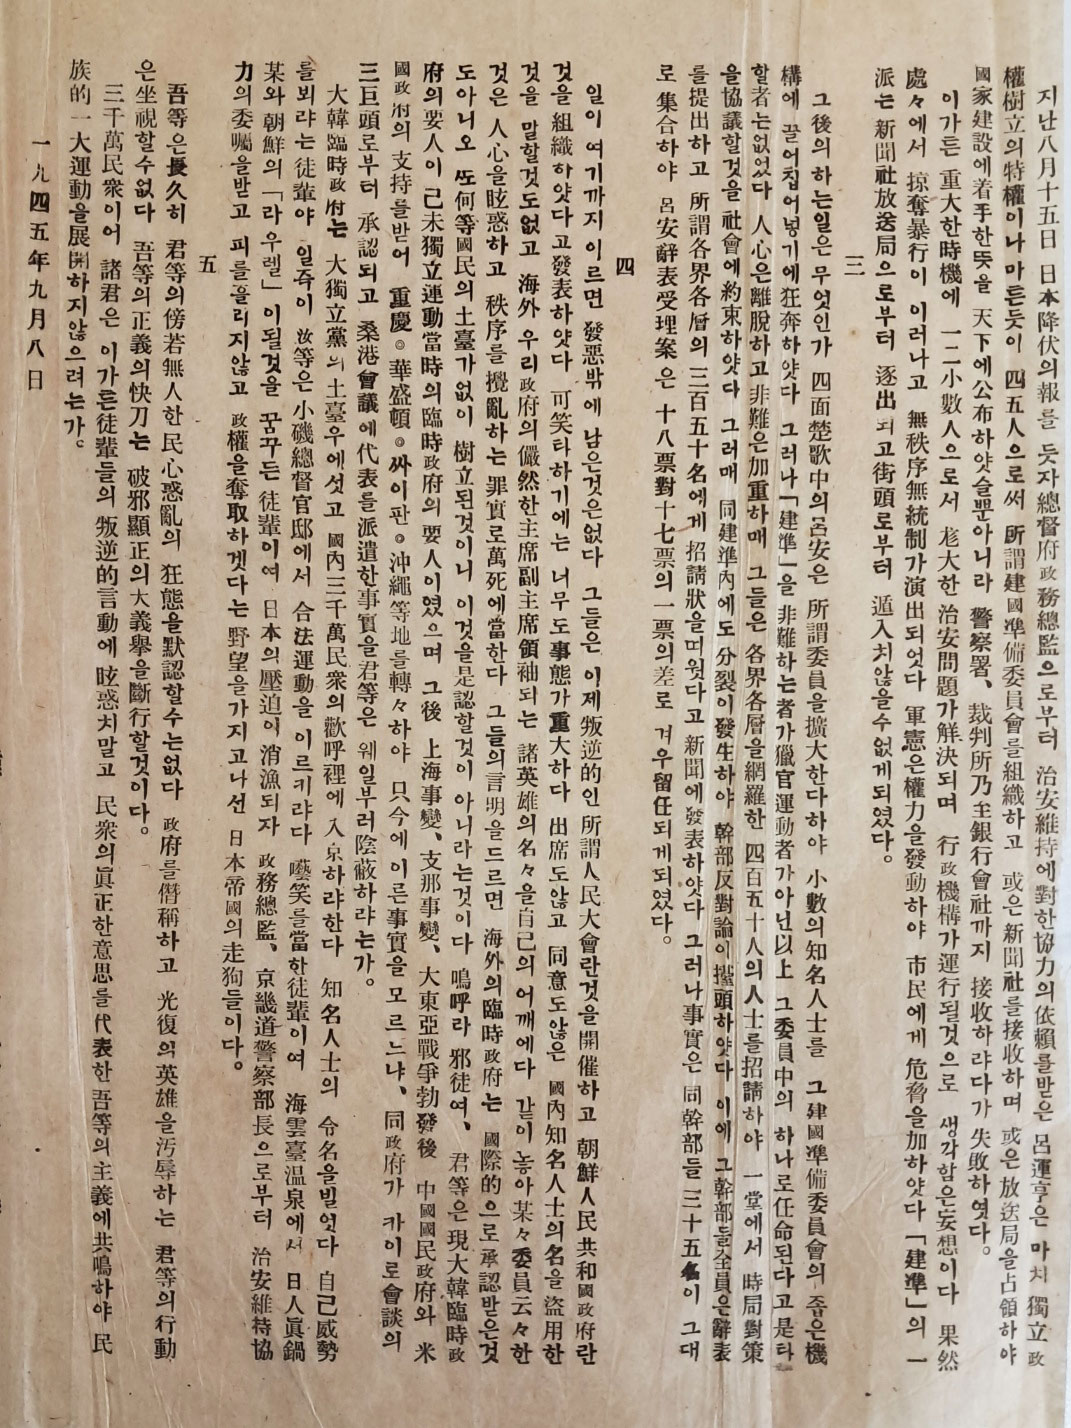 지난八月十五日 日本降伏의報를 듯자總督府政務總監으로부터 治安維持에對한協力의依賴를받은 呂運亨은 마치 獨立政
權樹立의特權이나마튼듯이 四五人으로써 所謂建國準備委員會를組織하고 或은新聞社를接收하며 或은放送局을占領하야
國家建設에着手한뜻을 天下에公布하얏슬뿐아니라 警察署、裁判所乃至銀行會社까지 接收하랴다가 失敗하엿다。
이가튼 重大한時機에 一二小數人으로서 尨大한 治安問題가解決되며 行政機構가運行될것으로 생각함은妄想이다 果然
處々에서 掠奪暴行이 이러나고 無秩序無統制가演出되엇다 軍憲은權力을發動하야 市民에게 危脅을加하얏다「建準」의 一
派는 新聞社放送局으로부터 逐出되고街頭로부터 遁入치않을수없게되였다。
三
그後의하는일은무엇인가 四面楚歌中의呂安은 所謂委員을擴大한다하야 小數의知名人士를 그建國準備委員會의 좁은機
構에 끌어집어넣기에狂奔하얏다 그러나「建準」을 非難하는者가獵官運動者가아닌以上 그委員中의 하나로任命된다고是타
할者는없었다 人心은離脫하고非難은加重하매 그들은 各界各層을網羅한 四百五十人의人士를招請하야 一堂에서 時局對策
을協議할것을 社會에約束하얏다 그러매 同建準內에도 分裂이發生하야 幹部反對論이擡頭하얏다 이에 그幹部들全員은辭表
를提出하고 所謂各界各層의 三百五十名에게 招請狀을떠웟다고 新聞에發表하얏다 그러나事實은 同幹部들 三十五名이 그대
로 集合하야 呂安辭表受理案은 十八票對十七票의一票의差로 겨우留任되게되였다。
四
일이 여기까지이르면 發惡밖에 남은것은없다 그들은 이제叛逆的인 所謂人民大會란것을開催하고 朝鮮人民共和國政府란
것을組織하얏다고發表하얏다 可笑타하기에는 너무도事態가重大하다 出席도않고 同意도않은 國內知名人士의名을盜用한
것을 말할것도없고 海外 우리政府의儼然한主席副主席領袖되는 諸英雄의名々을自己의어깨에다 같이놓아某々委員云々한
것은 人心을眩惑하고 秩序를攪亂하는罪實로萬死에當한다 그들의言明을드르면 海外의臨時政府는 國際的으로承認받은것
도아니오 또何等國民의土臺가없이 樹立된것이니 이것을是認할것이 아니라는것이다 嗚呼라 邪徒여、君等은現大韓臨時政
府의要人이己未獨立運動當時의臨時政府의要人이였으며 그後 上海事變、支那事變、大東亞戰爭勃發後 中國國民政府와 米
國政府의支持를받어 重慶◎華盛頓◎싸이판◎沖繩等地를轉々하야 只今에이른事實을모르느냐、同政府가 카이로會談의
三巨頭로부터 承認되고 桑港會議에代表를派遣한事實을君等은 웨일부러陰蔽하랴는가。
大韓臨時政府는 大獨立黨의土臺우에섯고 國內三千萬民衆의歡呼裡에 入京하랴한다 知名人士의 令名을빌엇다 自己威勢
를뵈랴는徒輩야 일즉이 汝等은小磯總督官邸에서 合法運動을이르키랴다 囈笑를當한徒輩이여 海雲臺溫泉에서 日人眞鍋
某와朝鮮의「라우렐」이될것을 꿈꾸든徒輩이여 日本의壓迫이消漁되자 政務總監、京畿道警察部長으로부터 治安維持協
力의委囑을받고 피를흘리지않고 政權을奪取하겟다는野望을가지고나선 日本帝國의走狗들이다。
五
吾等은長久히 君等의傍若無人한民心惑亂의 狂態을默認할수는없다 政府를僭稱하고 光復의英雄을汚辱하는 君等의行動
은坐視할수없다 吾等의正義의快刀는 破邪顯正의大義擧을斷行할것이다。
三千萬民衆이어 諸君은 이가튼徒輩들의叛逆的言動에眩惑치말고 民衆의眞正한意思를代表한吾等의主義에共鳴하야 民
族的一大運動을展開하지않으려는가。
一九四五年九月八日